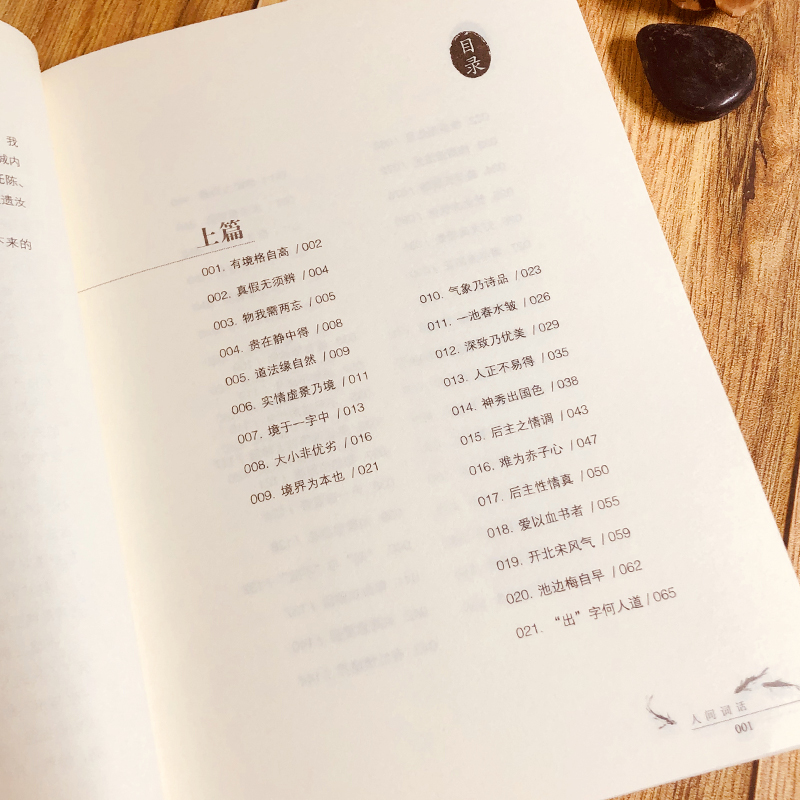 我
减内
任陈、
遗汝
来的
目录
上篇
001. 有境格自高 / 002
002. 真假无须辨 / 004
003. 物我需两忘 / 005
004. 贵在静中得 / 008
005. 道法缘自然 / 009
006. 实情虚景乃境 / 011
007. 境于一字中 / 013
008. 大小非优劣 / 016
009. 境界为本也 / 021
010. 气象乃诗品 / 023
011. 一池春水皱 / 026
012. 深致乃优美 / 029
013. 人正不易得 / 035
014. 神秀出国色 / 038
015. 后主之情调 / 043
016. 难为赤子心 / 047
017. 后主性情真 / 050
018. 爱以血书者 / 055
019. 开北宋风气 / 059
020. 池边梅自早 / 062
021. “出”字何人道 / 065
人间词话
001